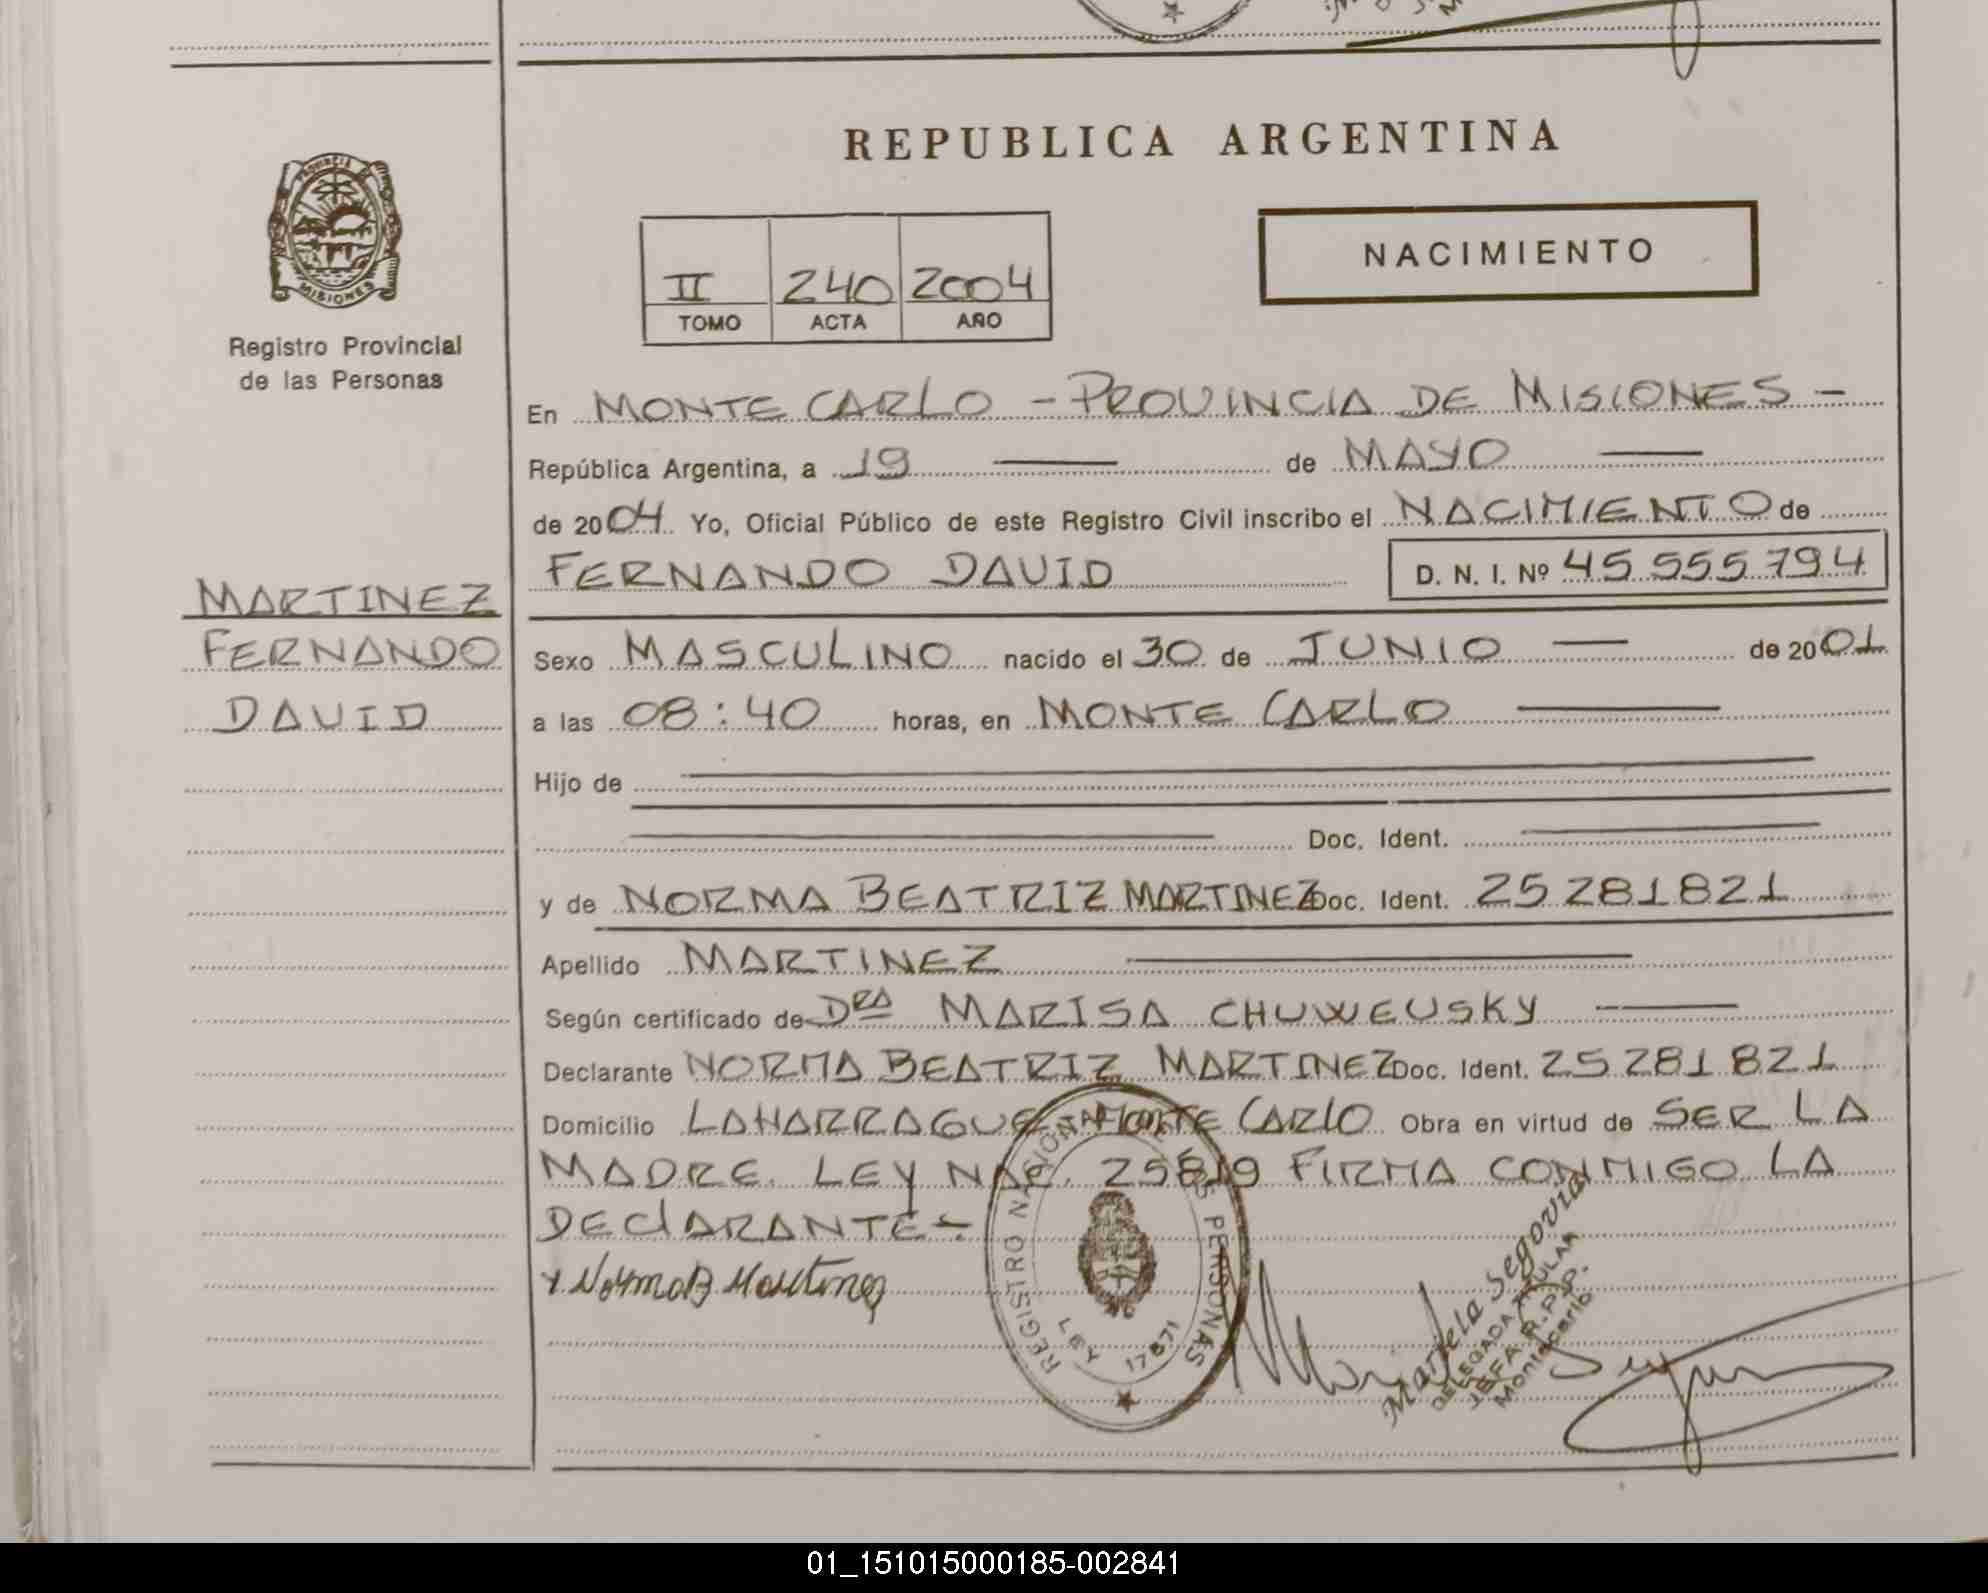 REPUBLICA ARGENTINA
PROVINCIA DE
MISIONES
Registro Provincial
de las Personas
NACIMIENTO
II 240 2004
TOMO ACTA AÑO
En MONTE CARLO - PROVINCIA DE MISIONES -
República Argentina, a 19 de MAYO
de 2004 Yo, Oficial Público de este Registro Civil inscribo el NACIMIENTO de
FERNANDO DAVID D. N. I. Nº 45 555 794
MARTINEZ
FERNANDO
DAVID
Sexo MASCULINO nacido el 30 de JUNIO de 2001
a las 08:40 horas, en MONTE CARLO
Hijo de
Doc. Ident.
y de NORMA BEATRIZ MARTINEZ Doc. Ident. 25 281 821
Apellido MARTINEZ
Según certificado de DRA MARISA CHUWEUSKY
Declarante NORMA BEATRIZ MARTINEZ Doc. Ident. 25 281 821
Domicilio LAHARRAGUE MONTE CARLO Obra en virtud de SER LA
MADRE. LEY NAC. 25819 FIRMA CONMIGO LA
DECLARANTE -
Norma B Martinez
REGISTRO NACIONAL DE LAS PERSONAS
LEY 17671
Mariela Segovia
DELEGADA TITULAR
JEFA R.P.P.
Montecarlo
01_151015000185-002841